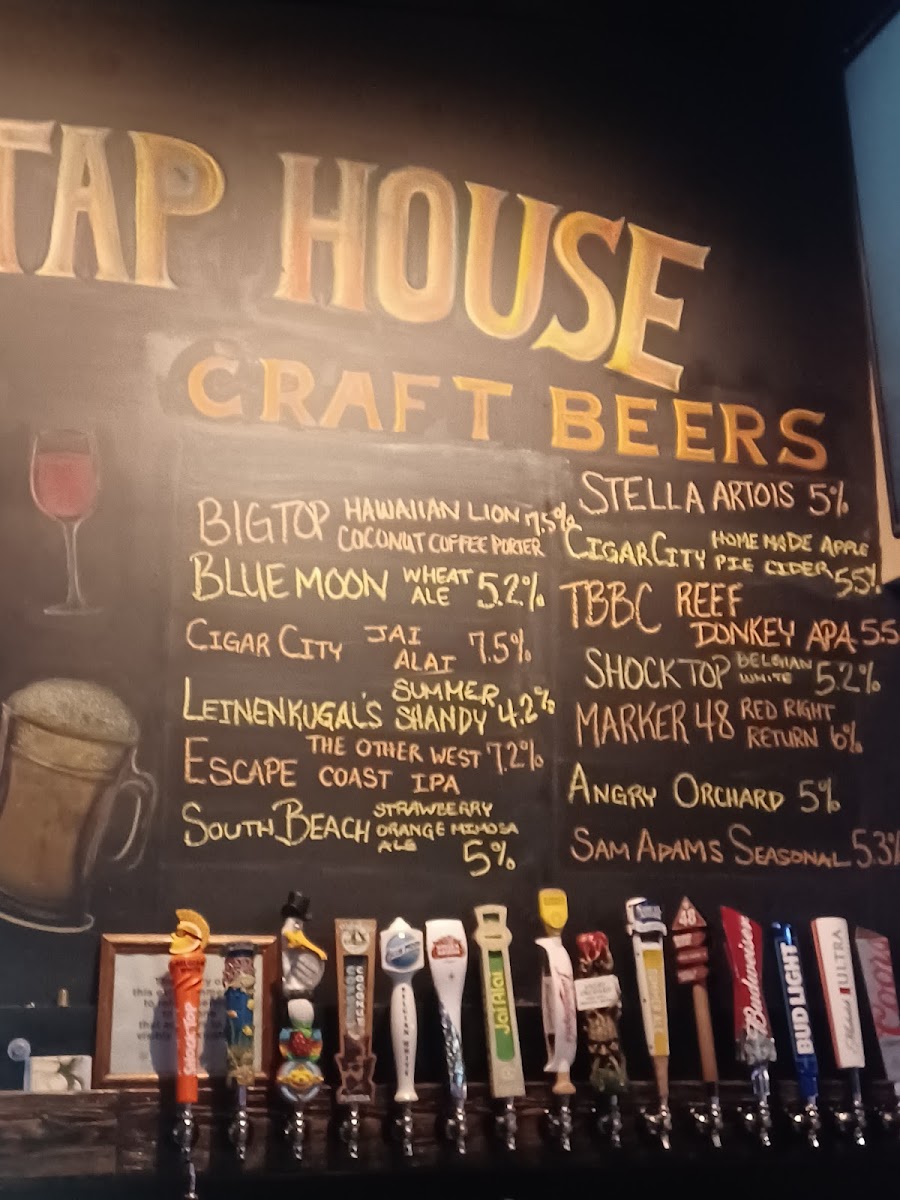 TAP HOUSE
CRAFT BEERS
BIGTOP HAWAIIAN LION 7.5%
COCONUT COFFEE PORTER
BLUE MOON WHEAT ALE 5.2%
CIGAR CITY JAI ALAI 7.5%
LEINENKUGAL'S SUMMER SHANDY 4.2%
ESCAPE THE OTHER WEST COAST IPA 7.2%
SOUTH BEACH STRAWBERRY ORANGE MIMOSA ALE 5%
STELLA ARTOIS 5%
CIGAR CITY HOME MADE APPLE PIE CIDER 5.5%
TBBC REEF DONKEY APA 5.5
SHOCK TOP BELGIAN WHITE 5.2%
MARKER 48 RED RIGHT RETURN 6%
ANGRY ORCHARD 5%
SAM ADAMS SEASONAL 5.3%
SHOCK TOP
BELGIAN WHITE
Jai Alai
48
Budweiser
BUD LIGHT
Michelob ULTRA
Coors